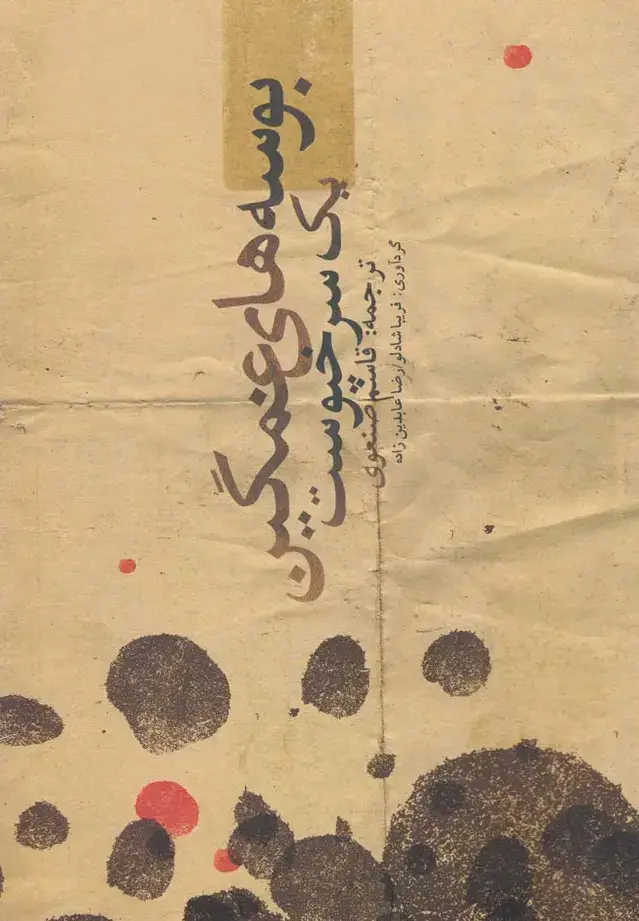 بوسه های غمگین
یک سرخپوست
ترجمه: قاسم صنعوی
گردآوری: فریبا شادلو/رضا عابدین زاده